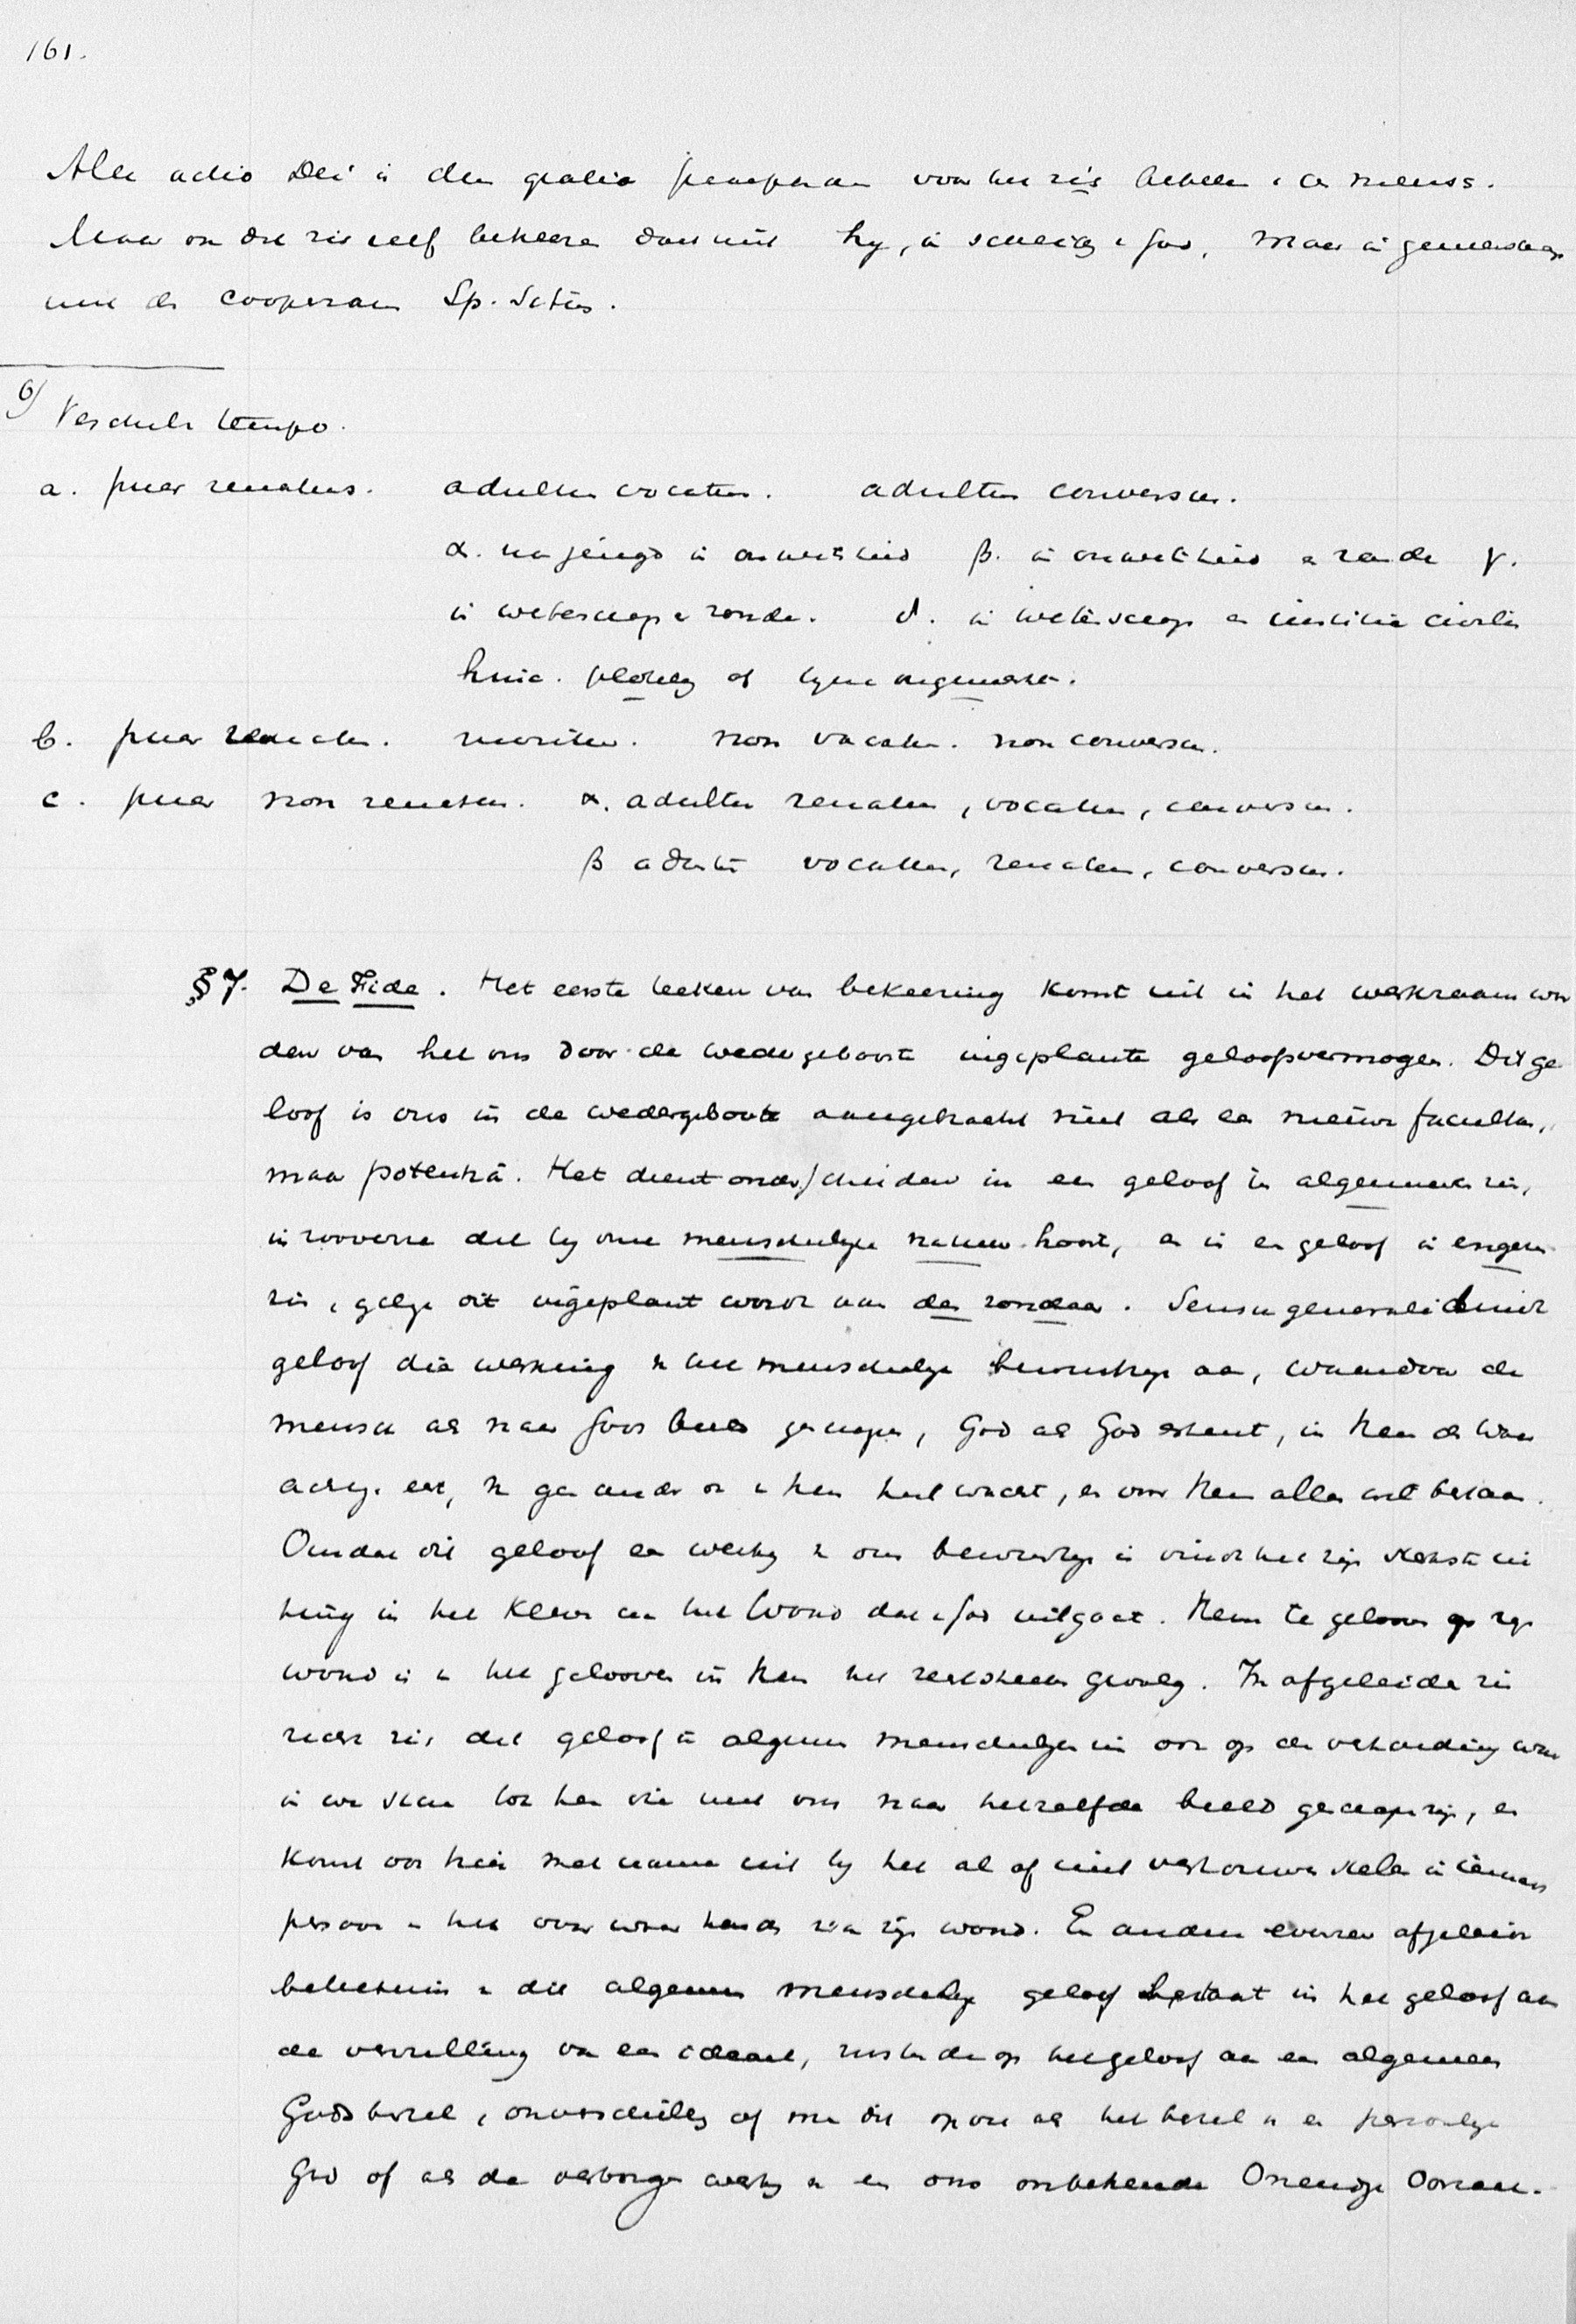 161.
Alle actio Dei in den gratia praeparans voor het zich bekeeren
Maar om dit zich zelf bekeeren doet niet hij, in scheiding v. God, maar in gemeenschap
met de cooperans Sp. Sctus.
6) Verschil in tempo.
a. puer renatus. adultus vocatus. adultus conversus.
α. na jeugd in onwetendheid β. in onwetendheid en zonde γ.
in wetenschap en zonde. δ. in wetenschap en iustitia civilis
hunc. plotseling of
b. puer renatus. moritur. non vocatus. non conversus.
c. puer non renatus. α. adultus renatus, vocatus, conversus.
β adultus vocatus, renatus, conversus.
§ 7. De Fide. Het eerste teeken van bekeering komt uit in het werkzaam wor
den van het ons door de wedergeboorte ingeplante geloofsvermogen. Dit ge
loof is ons in de wedergeboorte aangebracht niet als een nieuwe facultas,
maar potentiâ. Het dient onderscheiden in een geloof in algemeenen zin,
in zooverre dit bij onze menschelijke natuur hoort, en in een geloof in engeren
zin, gelijk dit ingeplant wordt aan den zondaar. Sensu generali duidt
geloof die werking v. het menschelijk bewustzijn aan, waardoor de
mensch als naar Gods beeld geschapen, God als God erkent, in Hem de Waar
en van Hem heil wacht, en voor Hem alles wil bestaan.
Omdat dit geloof een werking v. ons bewustzijn is vindt het zijn sterkste ui
ting in het kleven aan het Woord dat v. God uitgaat. Hem te gelooven op zijn
woord is v. het gelooven in Hem het rechtstreeks gevolg. In afgeleiden zin
ziet dit geloof in algemeen menschelijken zin ook op de verhouding waar
in we staan tot hen die met ons naar hetzelfde beeld geschapen zijn, en
komt ook hier met name uit bij het al of niet vertrouwen stellen in iemands
persoon en het voor waar houden van zijn woord. Een andere evenzeer afgeleide
beteekenis v. dit algemeen menschelijk geloof bestaat in het geloof aan
de vervulling van een ideaal, rustende op het geloof aan een algemeen
Godsbestel, onverschillig of men dit opvat als het bestel v. een persoonlijk
God of als de verborgen werking v. een ons onbekende Oneindige Oorzaak.